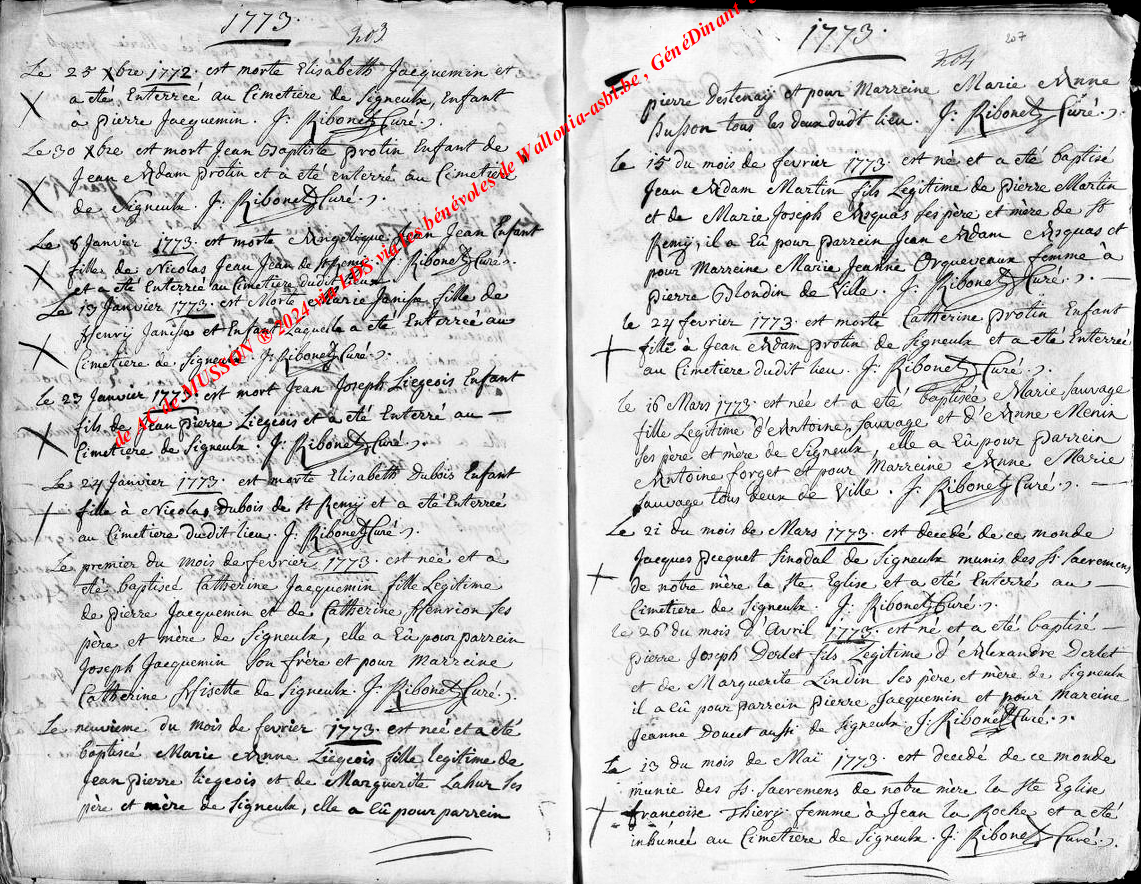 1773.
203
Le 25 Xbre 1772 est morte Elisabeth Jacquemin et
a eté Enterreé au Cimetiére de Signeulx Enfant
à pierre Jacquemin. J: Ribonet Curé.
Le 30 Xbre est mort Jean Baptiste protin Enfant de
Jean Adam protin et a eté enterré au Cimetiére
de Signeulx J: Ribonet Curé.
Le 8 Janvier 1773. est morte Angelique Jean Jean Enfant
fille de Nicolas Jean Jean de St Remÿ J: Ribonet Curé.
et a éte Enterreé au Cimetiére dudit lieu
Le 13 Janvier 1773. est Morte Marie Janisse fille de
Henrÿ Janisse et Enfant Laquelle a eté Enterreé au
Cimetiére de Signeulx J: Ribonet Curé.
Le 23 Janvier 1773. est mort Jean Joseph Liegeois Enfant
fils de Jean pierre Liegeois et a eté Enterré au —
Cimetiére de Signeulx J: Ribonet Curé.
Le 24 Janvier 1773. est morte Elisabeth Dubois Enfant
fille à Nicolas Dubois de St Remy et a eté Enterreé
au Cimetiére dudit lieu. J: Ribonet Curé.
Le premier du mois de fevrier 1773. est neé et a
eté baptiseé Catherine Jacquemin fille Legitime
de pierre Jacquemin et de Catherine Henrion ses
père et mère de Signeulx, elle a Eû pour parrein
Joseph Jacquemin son frère et pour Marreine
Catherine Hisette de Signeulx. J: Ribonet Curé.
Le neuvieme du mois de fevrier 1773. est neé et a eté
baptiseé Marie Anne Liegeois fille legitime de
Jean pierre liegeois et de Marguerite Lahur ses
pere et mère de Signeulx, elle a Eû pour parrein
1773.
204
207
pierre Destenaÿ et pour Marreine Marie Anne
husson tous les deux dudt lieu. J: Ribonet Curé.
Le 15 du mois de fevrier 1773. est né et a eté baptisé
Jean Adam Martin fils Legitime de pierre Martin
et de Marie Joseph Asquas ses père et mère de St
Remÿ, il a Eû pour parrein Jean Adam Asquas et
pour Marreine Marie Jeanne Orqueveaux femme à
pierre Blondin de Ville. J: Ribonet Curé. —
le 24 fevrier 1773. est morte Catherine protin Enfant
fille à Jean Adam protin de Signeulx et a eté Enterreé
au Cimetiére dudit lieu. J: Ribonet Curé.
le 16 Mars 1773. est neé et a eté baptiseé Marie Sauvage
fille Legitime d'Antoine Sauvage et d'Anne Menin
ses pere et mère de Signeulx, elle a Eû pour parrein
Antoine forget et pour Marreine Anne Marie
Sauvage tous deux de Ville. J: Ribonet Curé. —
Le 21 du mois de Mars 1773. est decedé de ce monde
Jacques pecquet Sinodal de Signeulx munis des Ss Sacremens
de notre mère la Ste Eglise et a eté Enterré au
Cimetiére de Signeulx. J: Ribonet Curé.
le 26 du mois d'Avril 1773. est né et a eté baptisé —
pierre Joseph Derlet fils Legitime d'Alexandre Derlet
et de Marguerite Lindin ses père et mère de Signeulx
il a eû pour parrein pierre Jacquemin et pour Mareine
Jeanne Doucet aussi de Signeulx J: Ribonet Curé.
Le 13 du mois de Maï 1773. est decedé de ce monde
munie des Ss. Sacremens de notre mere la Ste Eglise
françoise Thierÿ femme à Jean la Roche et a eté
inhumeé au Cimetiére de Signeulx. J: Ribonet Curé.
de AC de MUSSON ® 2024 via LDS via les bénévoles de Wallonia-asbl.be , GénéDinant